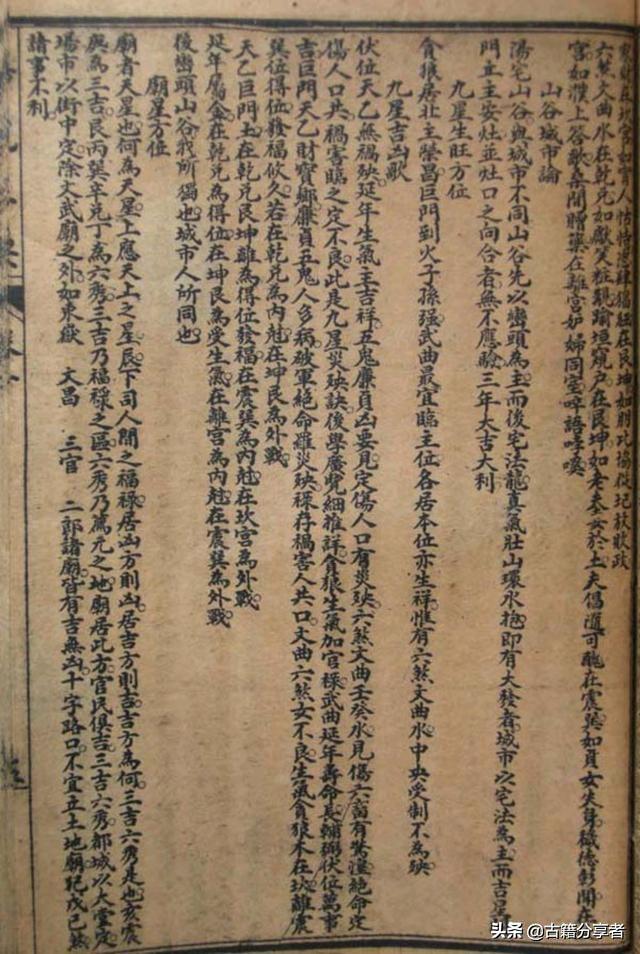 六煞文曲水在乾兑如獻笑粧親踰垣窺戶在艮坤如老秦女於土夫倡道可醜在震巽如貞女失
宮如濮上答歌桑間贈藥在離宮妒婦同室
山谷城市論
陽宅山谷與城市不同山谷先以巒頭為主而後宅法龍真氣壯山環水抱即有大發者城市以宅法為主而吉
門主主安灶並灶口之向合者無不應驗三年大吉大利
九星生旺方位
貪狼居北主榮昌巨門到火子孫强武曲最宜臨主位各居本位亦生祥惟有六煞文曲水中央受制不為殃
九星吉凶歌
伏位天乙無禍殃延年生氣主吉祥五鬼廉貞凶要見定傷人口有災殃六煞文曲壬癸水見傷六畜有驚遑絶命定
傷人口共禍害臨之定不良此是九星災殃訣後學廣覽細推詳貪狼生氣加官祿武曲延年壽命長輔弼伏位萬事
吉巨門天乙財寶鄉廉貞五鬼人多病破軍絶命罹災殃祿存禍害人共口文曲六煞女不良生氣貪狼木在坎離震
巽位得位發福悠久若在乾兑為內尅在坤艮為外戰
天乙巨門土在乾兑艮坤離為得位發福在震巽為內尅在坎宮為外戰
延年屬金在乾兑為得位在坤艮為受生氣在離宮為內尅在震巽為外戰
後巒頭山谷我所獨也城市人所同也
廟星方位
廟者天星也何為天星上應天上之星辰下司人間之福祿居凶方則凶居吉方則吉吉方為何三吉六秀是也亥震
庚為三吉艮丙巽辛兑丁為六秀三吉乃福祿之區六秀乃薦元之地廟居此方官民俱吉三吉六秀都城以大堂定
場市以街中定除文武廟之外如東嶽 大昌 三官 二郎諸廟皆有吉無凶十字路口不宜立土地廟犯戊己煞
諸事不利
头条 @古籍分享者